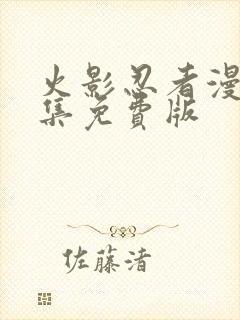 火影忍者漫
集免費版
佐藤渚